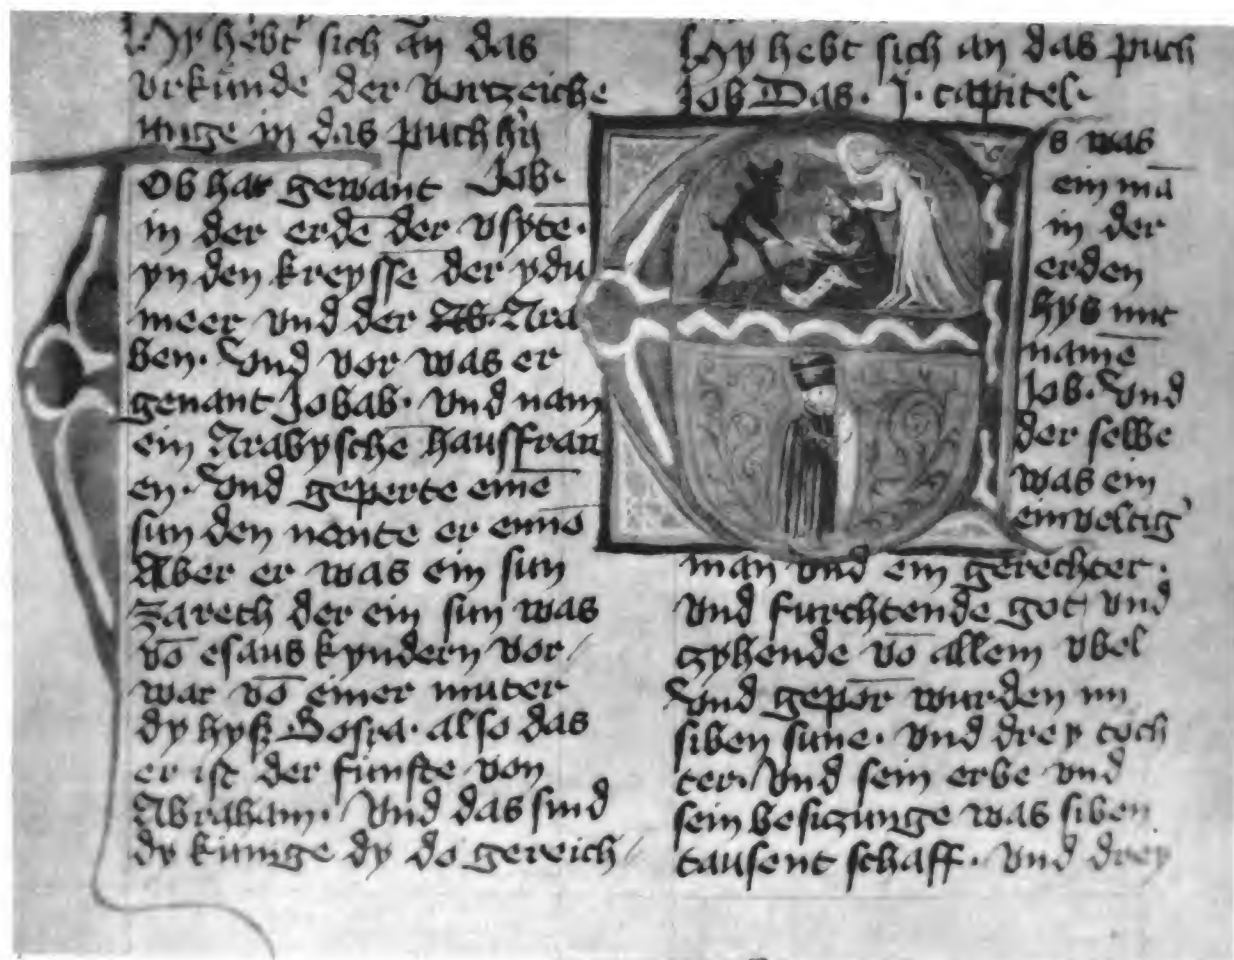 Hy hebt sich an das
vrkunde der vorzeiche
nuge in das puch hin
ob hat gewant Job·
in der erde der vsyte·
yn den kreysse der ydu
meer vnd der Ab· Ara
ben· Vnd vor was er
genant Jobab· vnd nam
ein Arabysche hausfrau
en· Vnd geperte eine
sun den nente er enno
Aber er was ein sun
zareth der ein sun was
vō esaus kyndern vor/
war vō einer muter
dy hyß Bosra· also das
er ist der funfte von
Abraham· Vnd das sind
dy kunige dy do gereich/
Hy hebt sich an das puch
Job Das· J· capitel·
s was
ein mā
in der
erden
hys mit
name
Job· Vnd
der selbe
was ein
einveltig'
man vnd ein gerechter·
vnd furchtende got vnd
zyhende vō allem vbel
Vnd gepor wurden im
siben sune· vnd drey toch
ter· Vnd sein erbe vnd
sein besiczunge was siben
tausent schaff· vnd drey